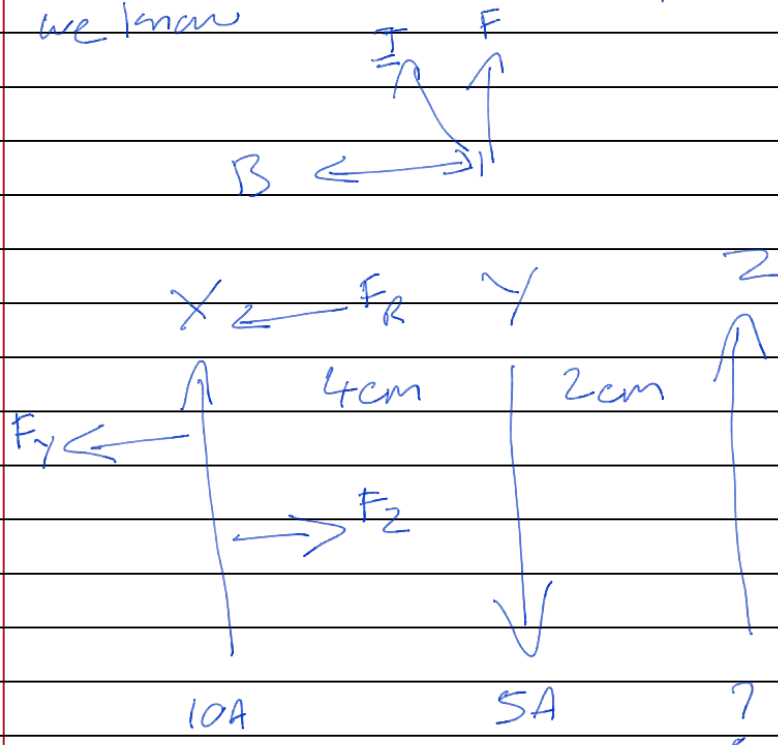 we know
I F
B
X F_R Y Z
4cm 2cm
F_Y
F_Z
10A 5A ?